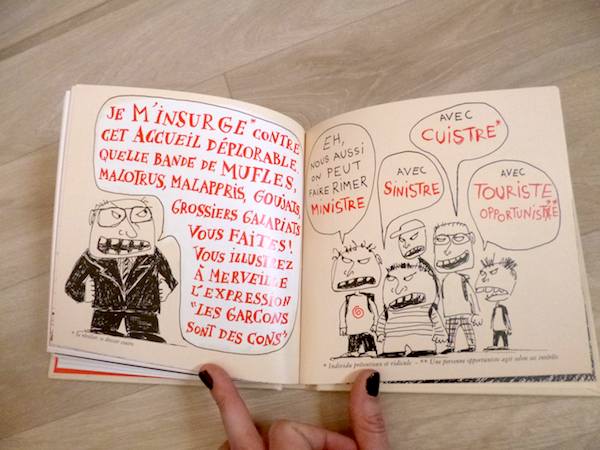 JE M'INSURGE* CONTRE
CET ACCUEIL DÉPLORABLE
QUELLE BANDE DE MUFLES,
MALOTRUS, MALAPPRIS, GOUJATS
GROSSIERS GALAPIATS
VOUS FAITES !
VOUS ILLUSTREZ
À MERVEILLE
L'EXPRESSION
"LES GARÇONS
SONT DES CONS"
* Se révolter, se dresser contre
EH,
NOUS AUSSI
ON PEUT
FAIRE RIMER
MINISTRE
AVEC
SINISTRE
AVEC
CUISTRE*
AVEC
TOURISTE
OPPORTUNISTRE**
* Individu prétentieux et ridicule – ** Une personne opportuniste agit selon ses intérêts